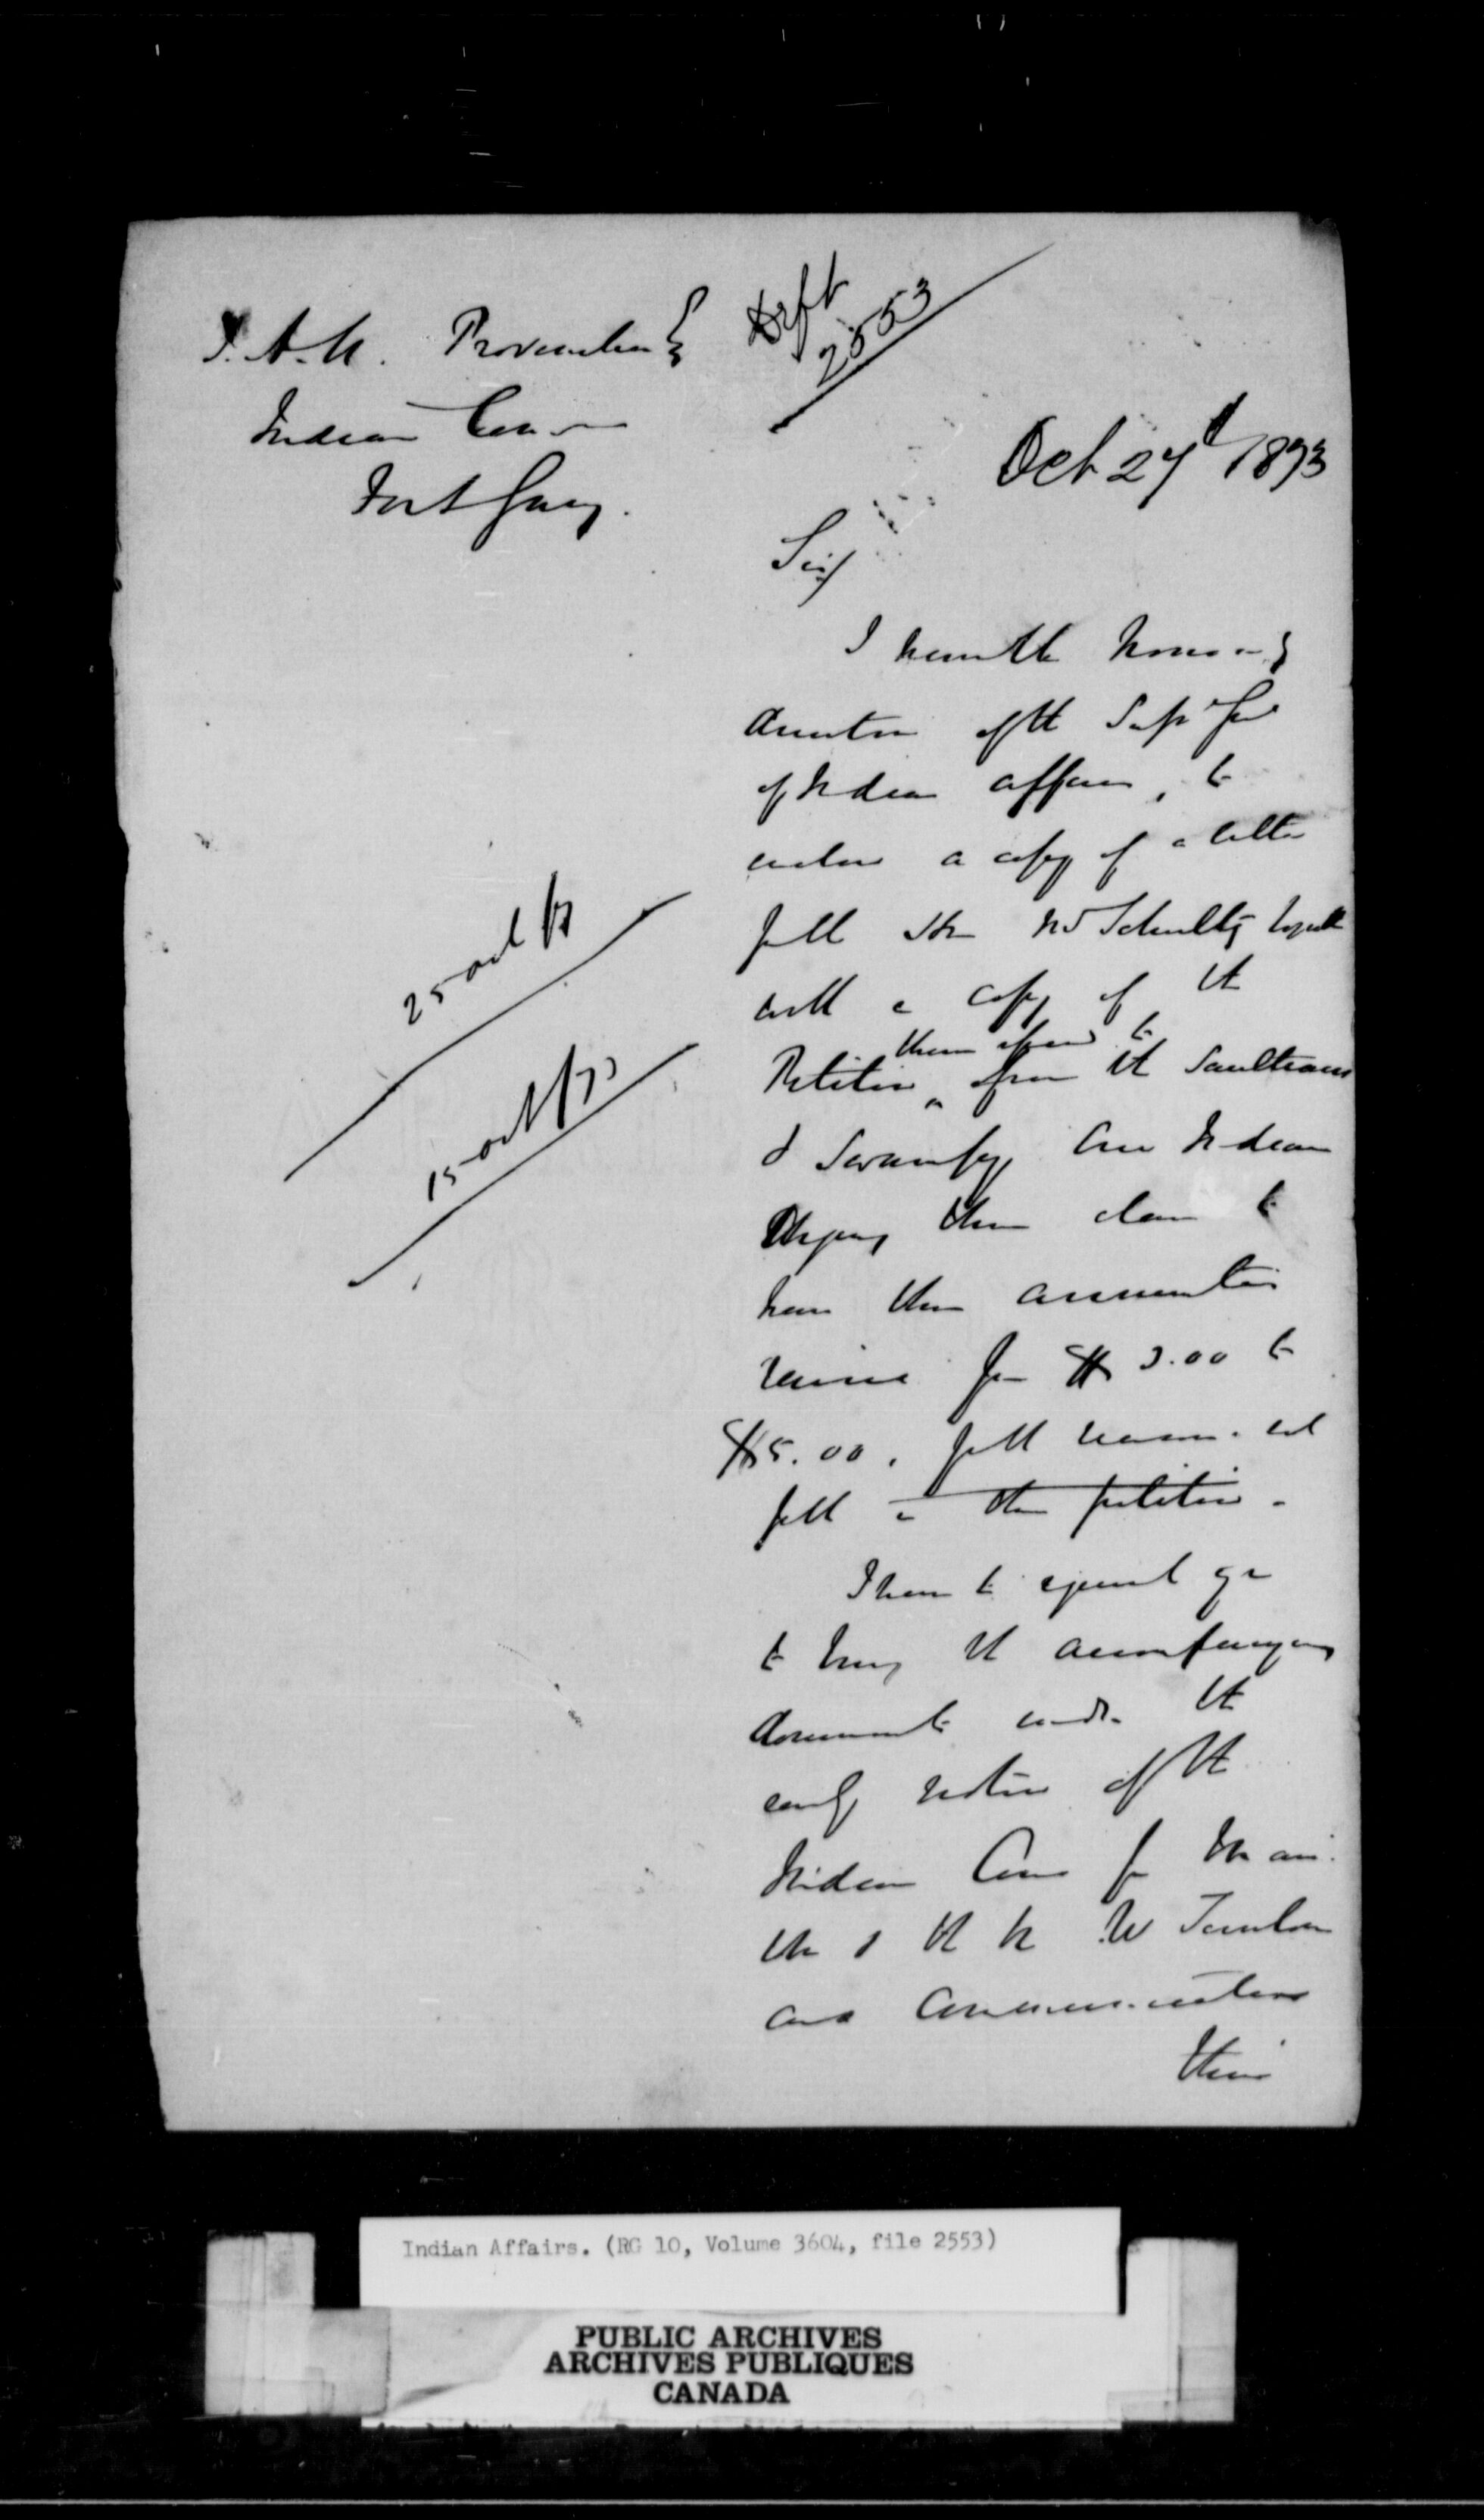 J. A. N. Provencher
Indian Com
Fort Garry.
Drft
2553
Oct 27 1873
Sir/
I have the honor by
direction of the Supt Genl
of Indian Affairs, to
enclose a copy of a letter
from the
with a copy of the
to
Petition from the Saulteaux
& Swampy Cree Indians
urging their claim to
have their annuities
raised from $ 3.00 to
$5.00, for the reasons set
forth in the petition.
25 Oct 73
15 Oct 73
I have to request you
to bring the accompanying
documents under the
early notice of the
Indian Com for Mani
& the N W
and
their
Indian Affairs. (RG 10, Volume 3604, file 2553)
PUBLIC ARCHIVES
ARCHIVES PUBLIQUES
CANADA